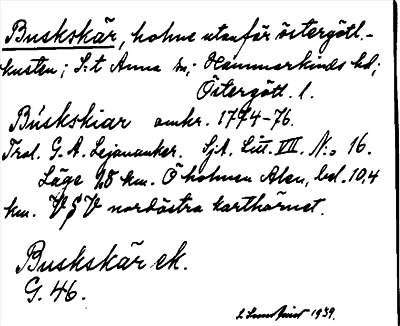 Buskskär, holme utanför östergötl.-
kusten; S:t Anna sn; Hammarkinds hd;
Östergötl. l.
Buskskiar omkr. 1774-76.
Trol. G. A. Lejonanker. SjA. Litt. VII. N:o 16.
Läge 28 km. Ö holmen Alen, bel. 10,4
km. V § V nordöstra karthörnet.
Buskskär ek.
G. 46.
1939.